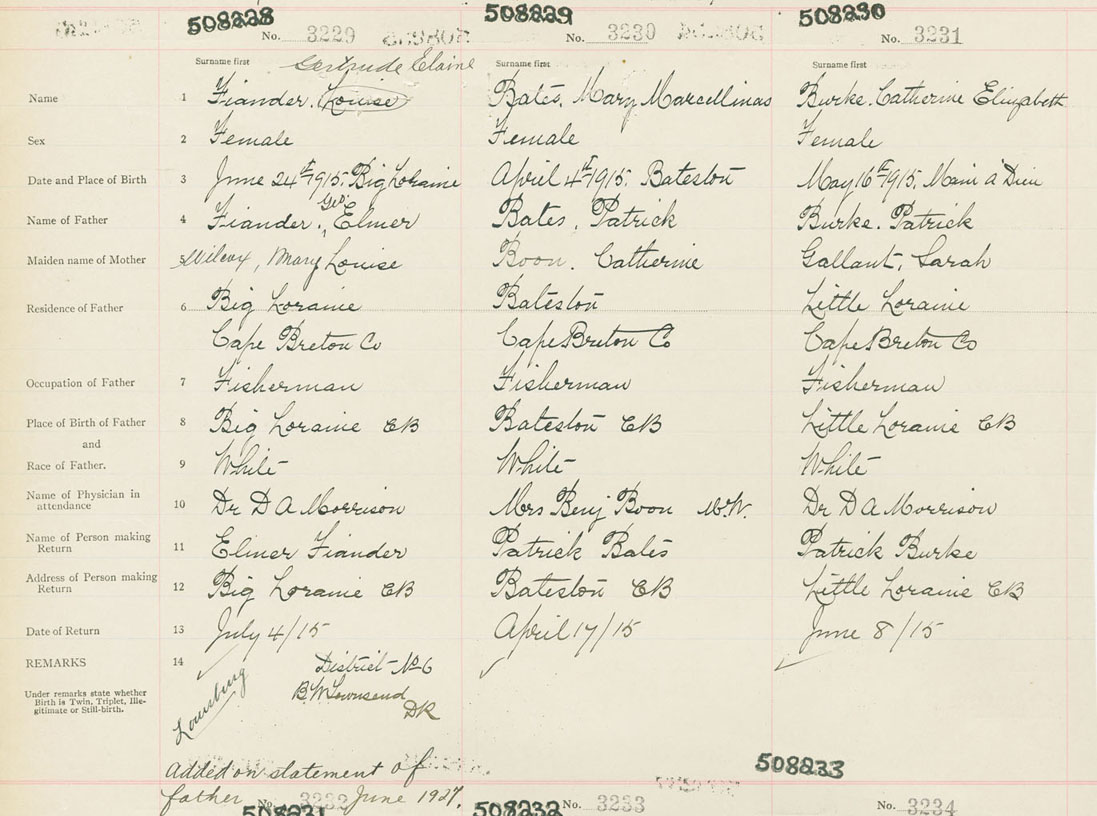 508228 508229 508230
No. 3229 No. 3230 No. 3231
Surname first Gertrude Elaine Surname first Surname first
Name 1 Fiander, Louise Bates, Mary Marcellinas Burke, Catherine Elizabeth
Sex 2 Female Female Female
Date and Place of Birth 3 June 24th 1915, Big Loraine April 4th 1915, Bateston May 16th 1915, Main a Dieu
Geo.
Name of Father 4 Fiander, Elmer Bates, Patrick Burke, Patrick
Maiden name of Mother 5 Wilcox, Mary Louise Boon, Catherine Gallant, Sarah
Residence of Father 6 Big Loraine Bateston Little Loraine
Cape Breton Co Cape Breton Co Cape Breton Co
Occupation of Father 7 Fisherman Fisherman Fisherman
Place of Birth of Father 8 Big Loraine CB Bateston CB Little Loraine CB
and
Race of Father. 9 White White White
Name of Physician in attendance 10 Dr D A Morrison Mrs Benj Boon M.W. Dr D A Morrison
Name of Person making Return 11 Elmer Fiander Patrick Bates Patrick Burke
Address of Person making Return 12 Big Loraine CB Bateston CB Little Loraine CB
Date of Return 13 July 4/15 April 17/15 June 8/15
REMARKS 14 District No 6
Under remarks state whether Birth is Twin, Triplet, Ille-gitimate or Still-birth. B. M. Townsend
DR
Louisburg
Added on statement of
father June 1927.
508233
No. 3232 No. 3233 No. 3234
508231 508232